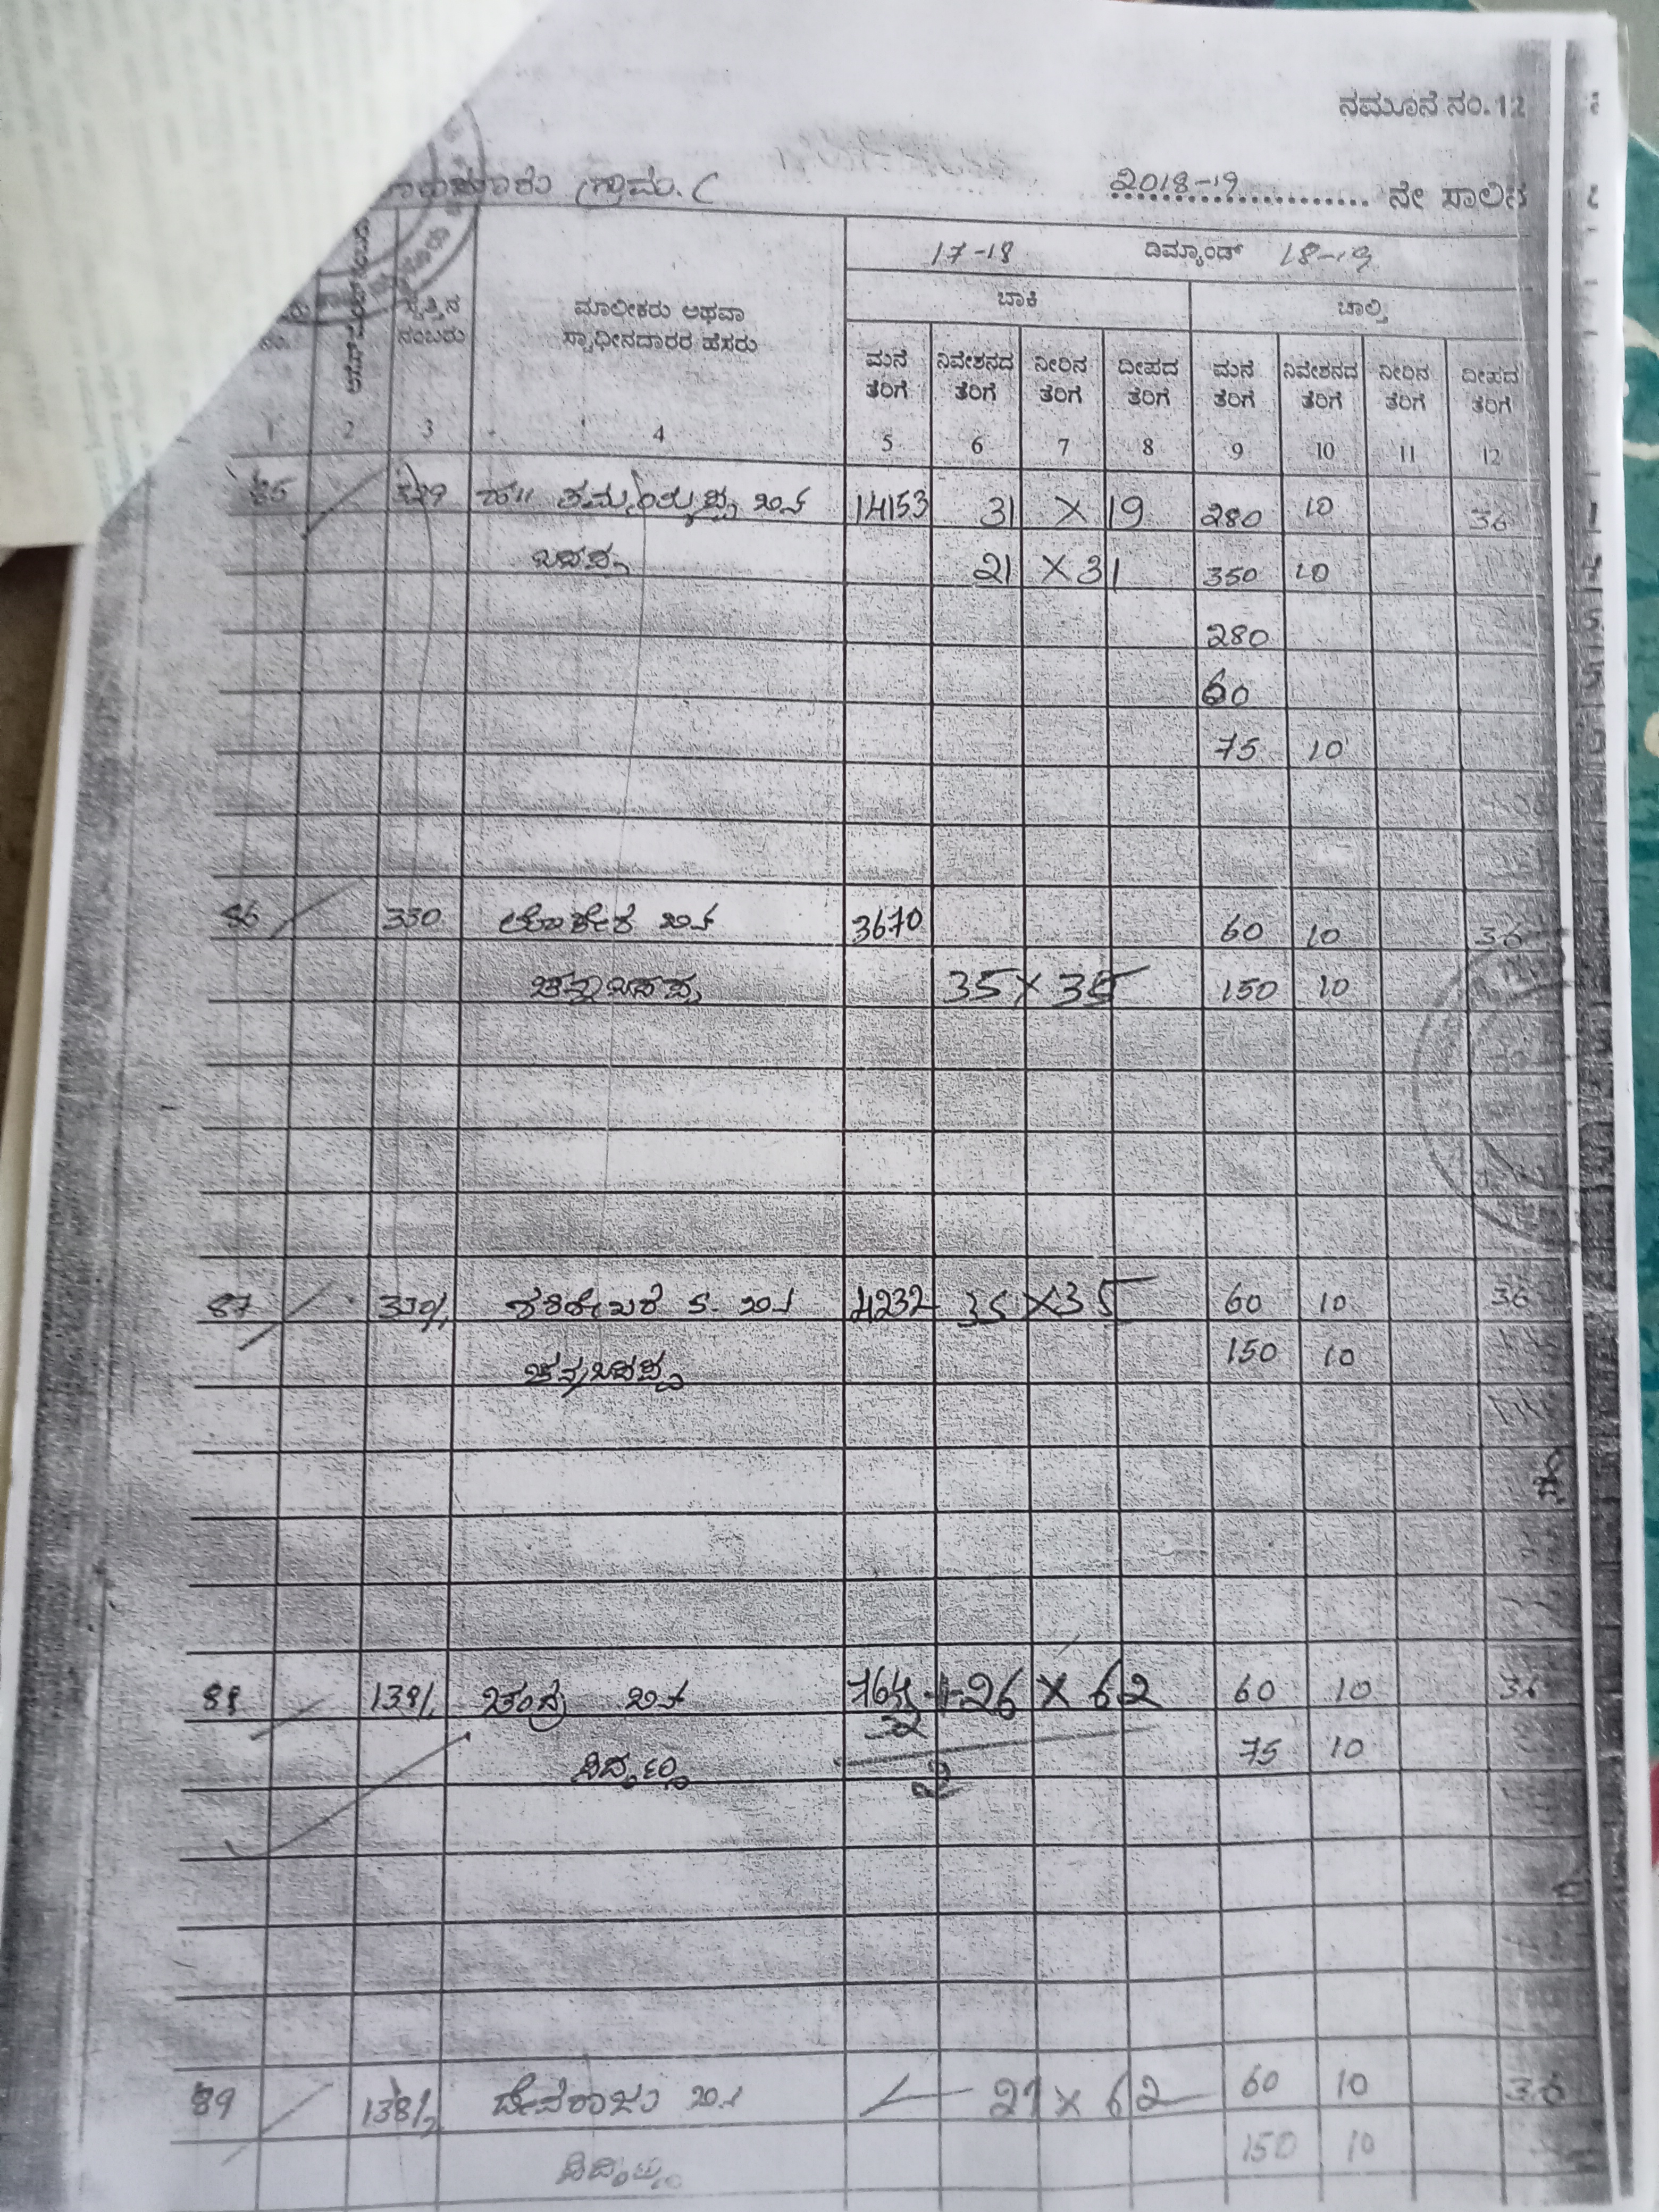 ನಮೂನೆ ನಂ. 12
ಗ್ರಾಮ.
2018-19 ನೇ ಸಾಲಿನ
17-18 ಡಿಮ್ಯಾಂಡ್ 18-19
ಬಾಕಿ ಚಾಲ್ತಿ
ಸ್ವತ್ತಿನ ಮಾಲೀಕರು ಅಥವಾ
ನಂ. ನಂಬರು ಸ್ವಾಧೀನದಾರರ ಹೆಸರು
ಮನೆ ನಿವೇಶನದ ನೀರಿನ ದೀಪದ ಮನೆ ನಿವೇಶನದ ನೀರಿನ ದೀಪದ
ತೆರಿಗೆ ತೆರಿಗೆ ತೆರಿಗೆ ತೆರಿಗೆ ತೆರಿಗೆ ತೆರಿಗೆ ತೆರಿಗೆ ತೆರಿಗೆ
1 2 3 4 5 6 7 8 9 10 11 12
85 329 ಬಿನ್ 14153 31 X 19 280 10 36
ಬಸಪ್ಪ 21 X 31 350 10
280
60
75 10
86 330 ಲೋಕೇಶ ಬಿನ್ 3670 60 10 36
ಚನ್ನಬಸಪ್ಪ 35 X 35 150 10
87 330/1 ಶಶಿಶೇಖರ S. ಬಿನ್ 4232 35 X 35 60 10 36
ಚನ್ನಬಸಪ್ಪ 150 10
88 138/1 ಚಂದ್ರ ಬಿನ್ 26 X 62 60 10 36
75 10
89 138/2 ದೇವರಾಜು ಬಿನ್ 29 X 62 60 10 36
150 10